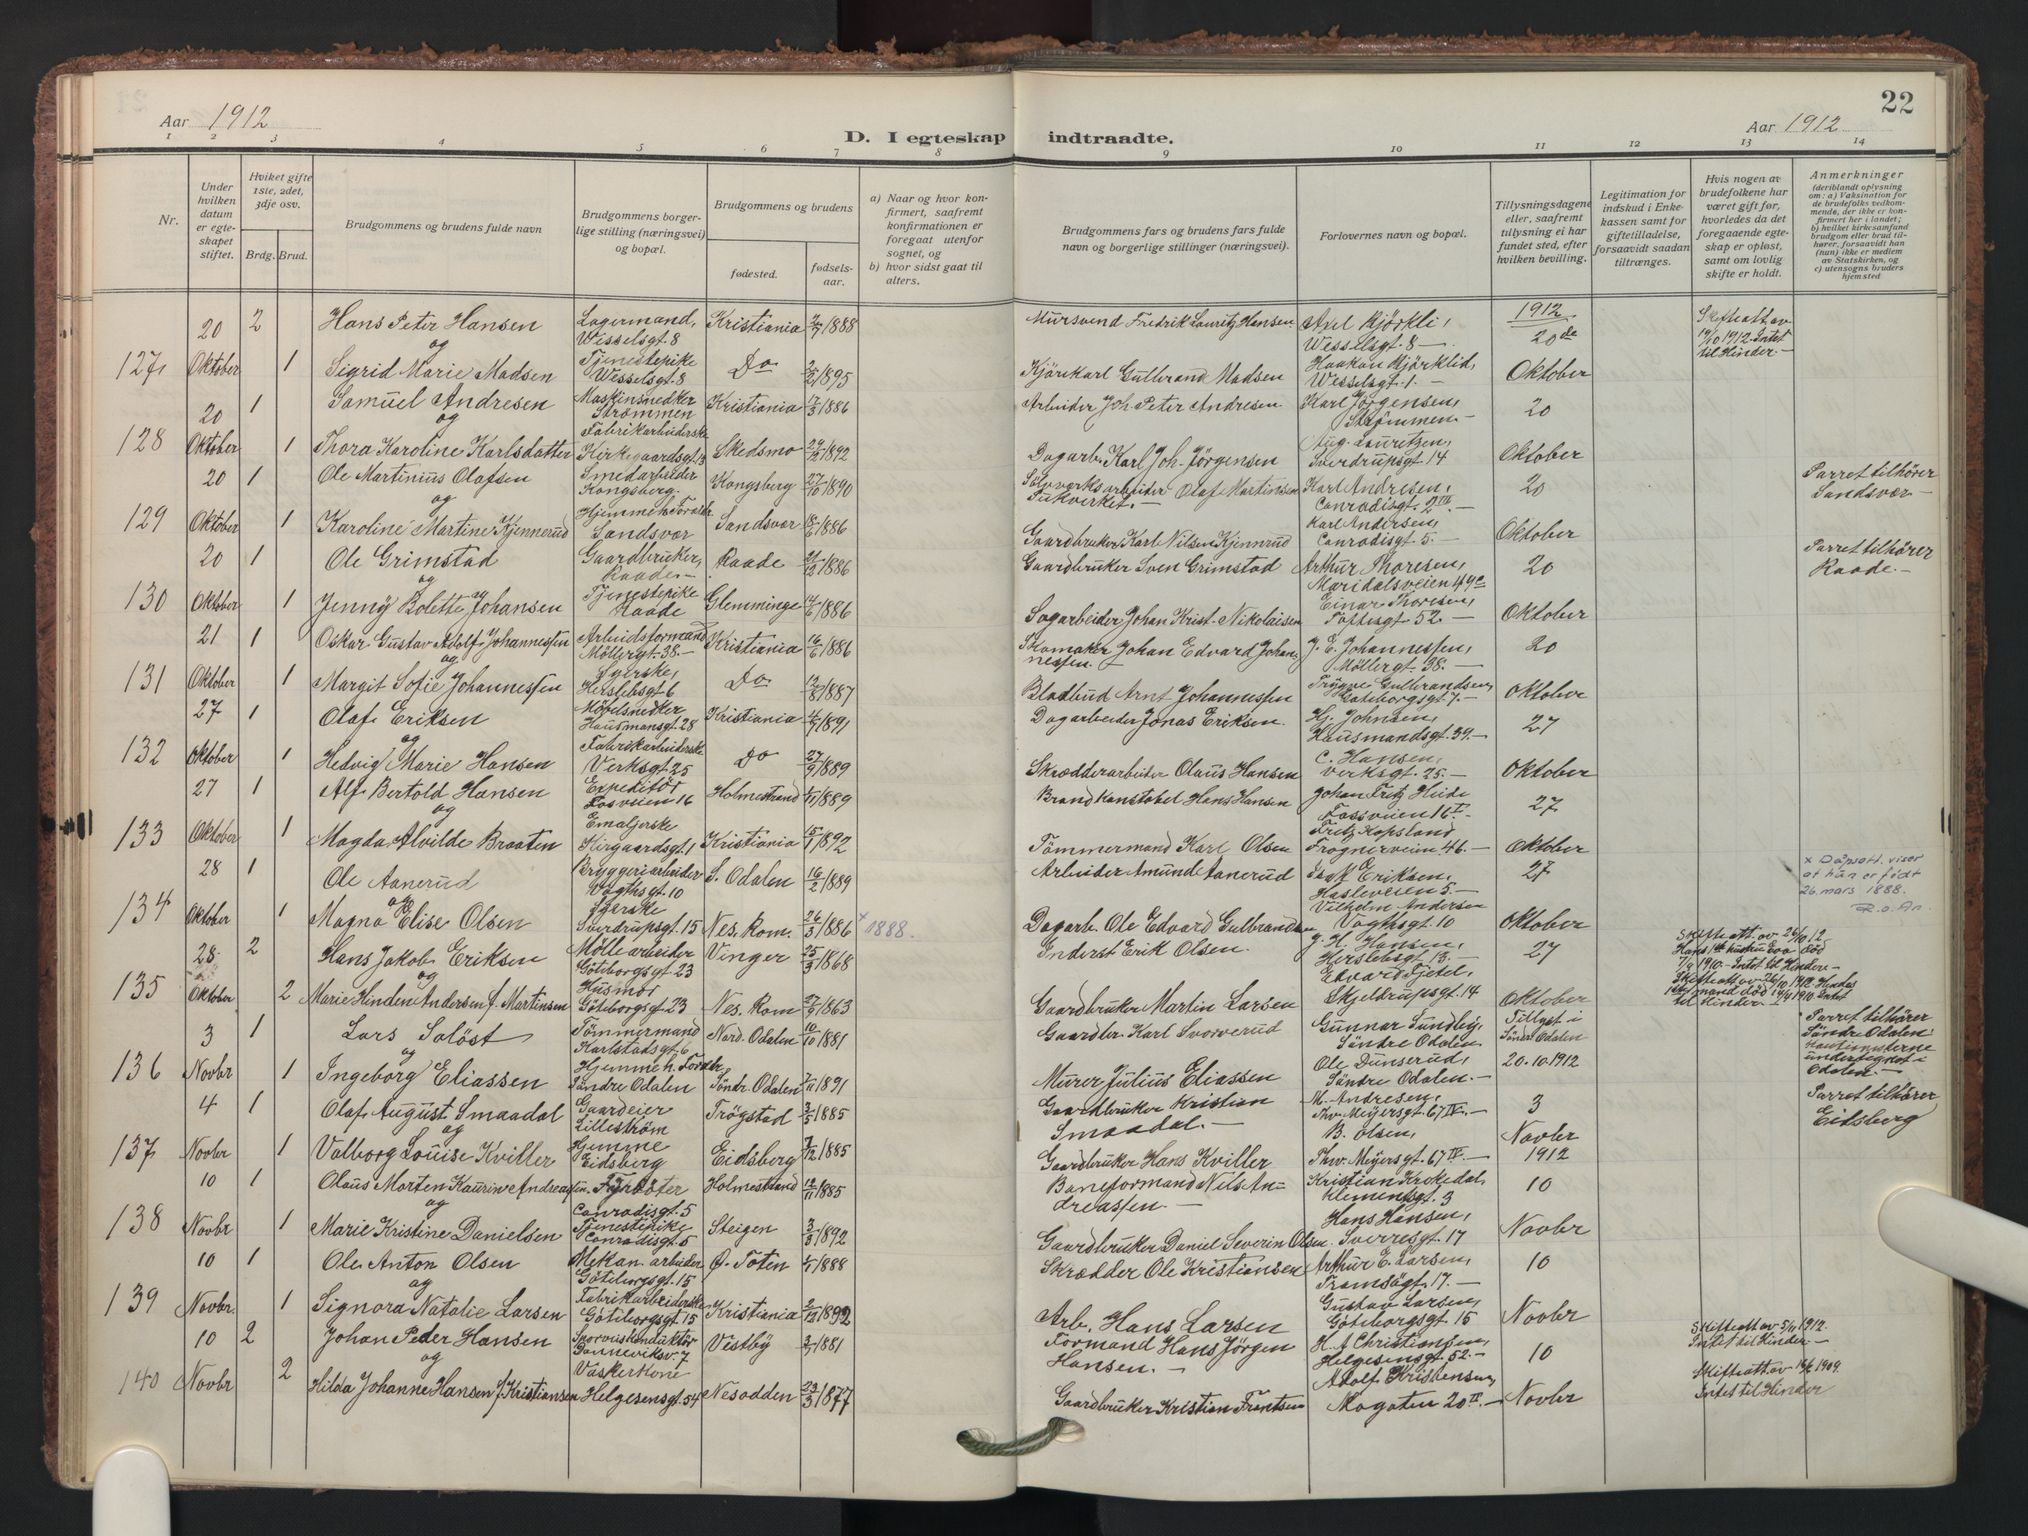 Aar 1912
D. I egteskap indtraadte.
Aar 1912
22
1 2 3 4 5 6 7 8 9 10 11 12 13 14
Nr.
Under hvilken datum er egteskapet stiftet.
Hviket gifte 1ste, 2det, 3dje osv.
Brdg. Brud.
Brudgommens og brudens fulde navn
Brudgommens borgerlige stilling (næringsvei) og bopæl.
Brudgommens og brudens
fødested.
fødselsaar.
a) Naar og hvor konfirmert, saafremt konfirmationen er foregaat utenfor sognet, og
b) hvor sidst gaat til alters.
Brudgommens fars og brudens fars fulde navn og borgerlige stillinger (næringsvei).
Forlovernes navn og bopæl.
Tillysningsdagene eller, saafremt tullysning ei har fundet sted, efter hvilken bevilling.
Legitimation for indskud i Enkekassen samt for giftetilladelse, forsaavidt saadan tiltrænges.
Hvis nogen av brudefolkene har været gift før, hvorledes da det foregaaende egteskap er opløst, samt om lovlig skifte er holdt.
Anmerkninger (deriblandt oplysning om: a) Vaksination for de brudefolks vedkommende, der ikke er konfirmert her i landet; b) hvilket kirkesamfund brudgom eller brud tilhører, forsaavidt han (hun) ikke er medlem av Statskirken, og c) utensogns bruders hjemsted
127 20 Oktober 2 1
Hans Peter Hansen og Sigrid Marie Madsen
Lagermand, Wesselsgt. 8
Tjenestepike Wesselsgt. 8
Kristiania 2/7 1888
Do 2/2 1895
Mursvend Fredrik Lauritz Hansen
Kjørekarl Gulbrand Madsen
Axel Bjørkli, Wesselsgt. 8
Haakon Mjørklid, Wesselsgt. 1.
1912 20de Oktober
Skifteatt. av 19/10 1912. Intet til Hinder
128 20 Oktober 1 1
Samuel Andresen og Thora Karoline Karlsdatter
Maskinsnedker Strømmen
Fabrikarbeiderske Kirkegaardsgt. 13
Kristiania 17/3 1886
Skedsmo 24/12 1892
Arbeider Joh. Peter Andresen
Dagarb. Karl Joh. Jørgensen
Karl Jørgensen, Strømmen
Aug. Lauretzen, Sverdrupsgt 14
20 Oktober
129 20 Oktober 1 1
Ole Martinius Olafsen og Karoline Martine Kjennerud
Smedarbeider Kongsberg.
Hjemme h. Foraldr. Sandsvær
Kongsberg 27/10 1890
Sandsvær 18/6 1886
Sølvverksarbeider Olaf Martinsen
Gaardbruker Karl Nilsen Kjennrud
Karl Andresen, Conradisgt. 2 III.
Karl Andersen, Conradisgt. 5.
20 Oktober
Parret tilhører Sandsvær
130 20 Oktober 1 1
Ole Grimstad og Jenny Bolette Johansen
Gaardbruker, Raade
Tjenestepike Raade
Raade 21/12 1886
Glemminge 14/6 1886
Gaardbruker Sven Grimstad
Sagarbeider Johan Krist. Nikolaisen
Arthur Thoresen, Maridalsveien 49c
Einar Thoresen, Toftesgt. 52.
20 Oktober
Parret tilhører Raade.
131 21 Oktober 1 1
Oskar Gustav Adolf Johannessen og Margit Sofie Johannessen
Arbeidsformand Møllergt. 38.
Syerske, Herslebsgt 6
Kristiania 16/6 1886
Do 12/8 1887
Skomaker Johan Edvard Johannessen.
Bladbud Arnt Johannessen
J. E. Johannessen, Møllergt. 38.
Trygve Gulbrandsen, Gøteborgsgt 7.
20 Oktober
132 27 Oktober 1 1
Olaf Eriksen og Hedvig Marie Hansen
Møbelsnedker Hausmansgt. 28
Fabrikarbeiderske Verksgt. 25
Kristiania 1891
Do 27/9 1889
Dagarbeider Jonas Eriksen.
Skrædderarbeider Olaus Hansen
Hj. Johnsen, Hausmandsgt. 39.
C. Hansen, Verksgt. 25.
27 Oktober
133 27 Oktober 1 1
Alf Bertold Hansen og Magda Alvilde Braaten
Expeditør Fosveien 16
Emaljerske Kirgaardsgt. 1
Holmestrand 1889
Kristiania 15/1 1892
Brandkonstabel Hans Hansen
Tømmermand Karl Olsen
Johan Fritz Heide Fossveien 16 I.
Fritz Kopsland Frognerveien 46.
27 Oktober
134 28 Oktober 1 1
Ole Aanerud og Magna Elise Olsen
Bryggeriarbeider Vogtsgt. 10
Syerske Sverdrupsgt. 15
S. Odalen 16/2 1889
Nes. Rom. 26/3 1886 x 1888.
Arbeider Amund Aanerud
Dagarb. Ole Edvard Gulbrandsen
Isak Eriksen, Hasleveien 5.
Vilhelm Andersen Vogtsgt. 10
27 Oktober
x Dåpsatt. viser at hun er født 26. mars 1888. R.o.An.
135 28 Oktober 2 2
Hans Jakob Eriksen og Marie Hinden Andersen f. Martinsen
Møllearbeider Göteborgsgt 23
Husmor Göteborgsgt. 23
Vinger 25/3 1868
Nes. Rom 27/9 1863
Inderst Erik Olsen.
Gaardbruker Martin Larsen
J. H. Hansen, Herslebsgt. 13.
Edvard Fjetel, Skjeldrupsgt. 14
27 Oktober
Skifteatt. av 26/10 12 Hans 1ste hustru Eva død 7/9 1910. Intet til Hinder
Skifteatt. av 26/10 1912 Hendes 1ste mand død 1910 Intet til Hinder
136 3 Novbr 1 1
Lars Soløst og Ingeborg Eliassen
Tømmermand Karlstadsgt. 6
Hjemme h. Foraldr. Søndre Odalen
Nord. Odalen 10/10 1881
Söndr. Odalen 7/11 1891
Gaardbr. Karl Svorverud
Murer Julius Eliassen
Gunnar Sundby, Søndre Odalen.
Ole Dunserud, Søndre Odalen.
Tillyst i Sönd. Odalen 20.10.1912
Parret tilhører Søndre Odalen. Kautionisterne undertegnet i Odalen.
137 4 Novbr 1 1
Olaf August Smaadal og Valborg Louise Kviller
Gaardeier Lillestrøm
Hjemme Eidsberg
Trögstad 3/5 1885
Eidsberg 7/12 1885
Gaardbruker Kristian Smaadal.
Gaardbruker Hans Kviller
M. Andresen, Thv. Meyersgt. 67 IV.
B. Olsen, Thv. Meyersgt. 67 IV.
3 Novbr 1912
Parret tilhører Eidsberg
138 10 Novbr 1 1
Olaus Morten Kaurin Andreassen og Marie Kristine Danielsen
Fyrbøter Conradisgt. 5
Tjenestepike Conradisgt. 5
Holmestrand 12/11 1885
Steigen 3/3 1892
Baneformand Nils Andreassen.
Gaardbruker Daniel Severin Olsen.
Kristian Krokedal, Klemensgt. 3
Hans Hansen, Sverresgt. 17
10 Novbr
139 10 Novbr 1 1
Ole Anton Olsen og Signora Natalie Larsen
Mekan. arbeider Göteborgsgt. 15
Fabrikarbeiderske Göteborgsgt 15
Ø. Toten 1888
Kristiania 2/12 1892
Skrædder Ole Kristiansen
Arb. Hans Larsen
Arthur E. Larsen, Tromsøgt. 17.
Gustav Larsen, Göteborgsgt. 15
10 Novbr
140 10 Novbr 2 2
Johan Peder Hansen og Hilda Johanne Hansen f. Kristiansen
Sporveiskonduktør Danneviksv. 7
Vaskerkone Helgesensgt. 54
Vestby 1881
Nesodden 23/3 1877
Formand Hans Jörgen Hansen.
Gaardbruker Kristian Frantsen
H. A Christiansen, Helgesensgt. 52.
Adolf Kristensen, Mogaten 20 II.
10 Novbr
Skifteatt. av 5/11 1912. Intet til Hinder.
Skifteatt. av 19/6 1909. Intet til Hinder